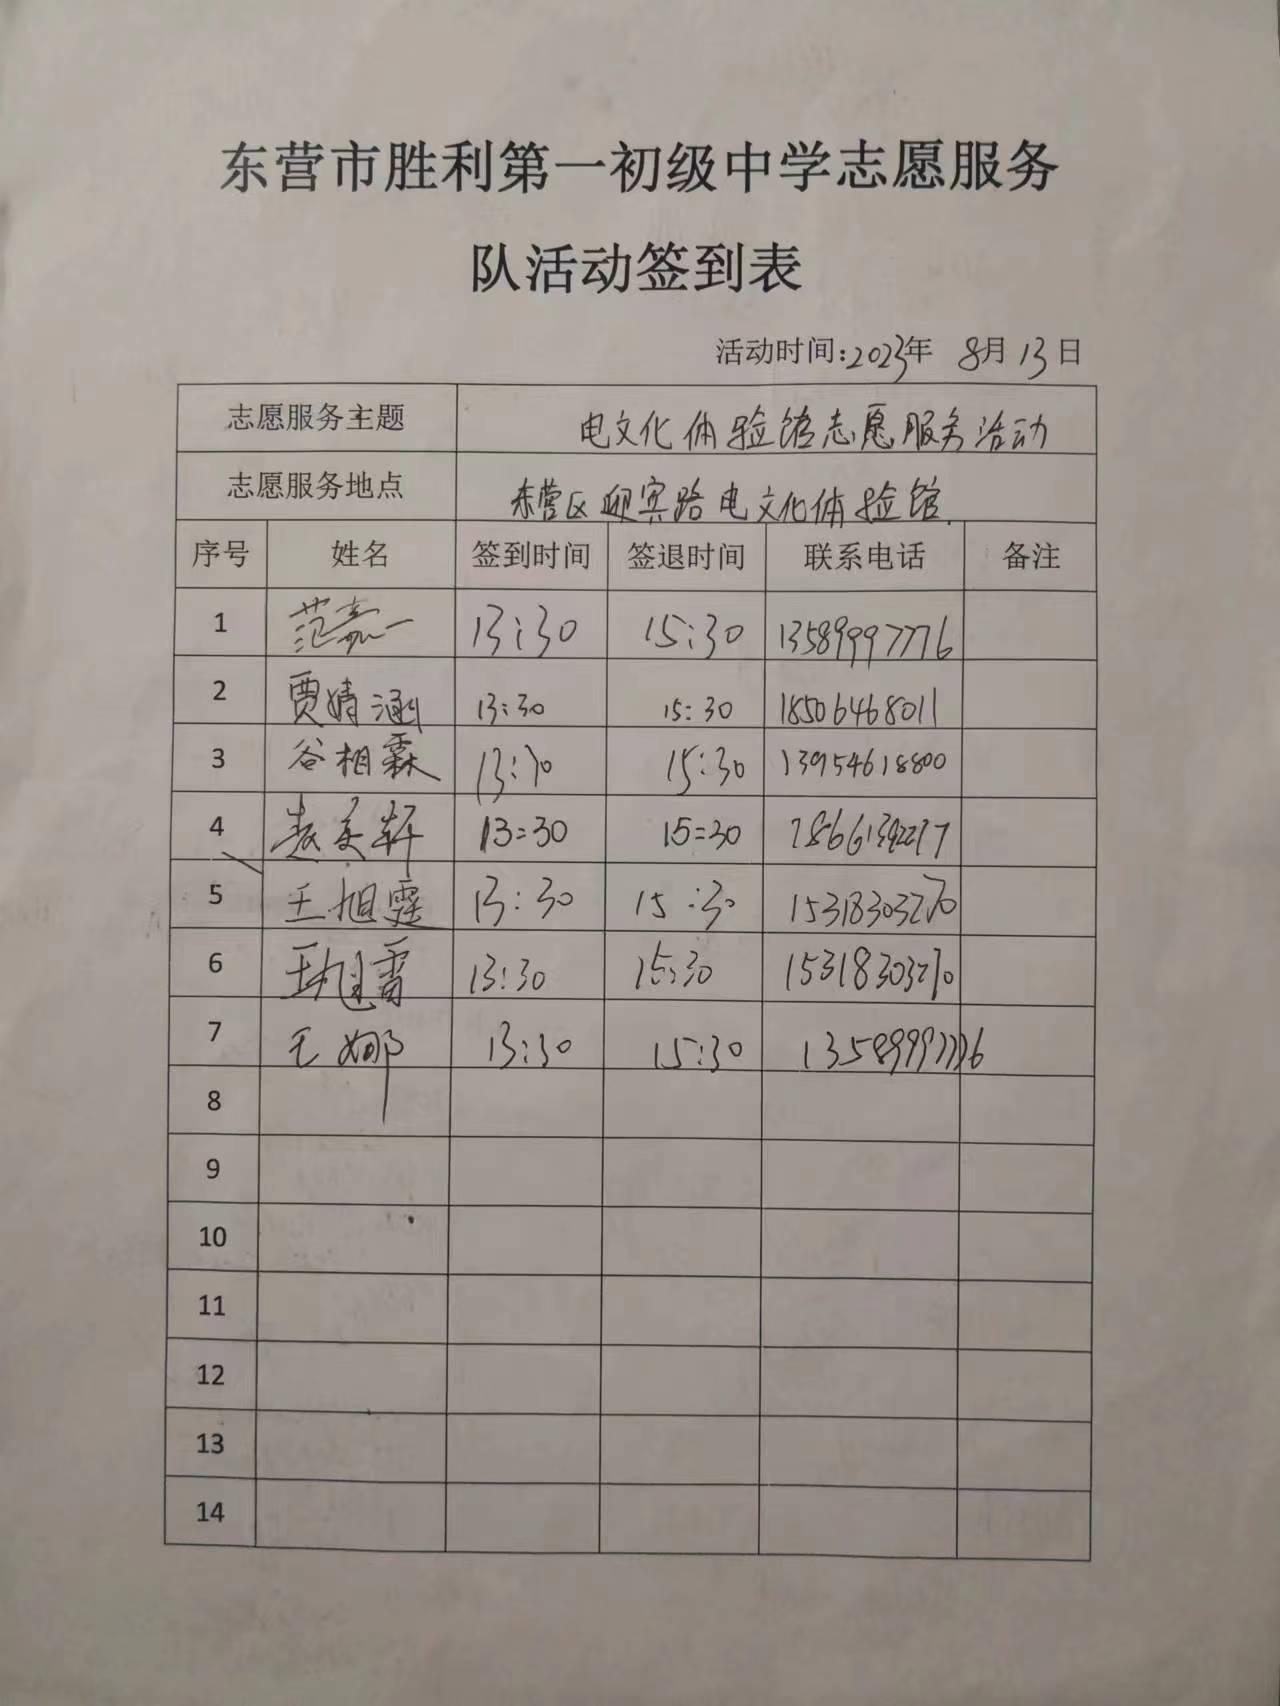 东营市胜利第一初级中学志愿服务
队活动签到表
活动时间:2023年 8月13日
志愿服务主题 电文化体验馆志愿服务活动
志愿服务地点 东营区迎宾路电文化体验馆.
序号 姓名 签到时间 签退时间 联系电话 备注
1 范嘉一 13:30 15:30 13589997776
2 贾婧涵 13:30 15:30 18506468011
3 谷相霖 13:30 15:30 13954618800
4 13=30 15=30
5 王旭霆 13:30 15:30 15318303270
6 王旭雷 13:30 15:30 15318303270
7 王娜 13:30 15:30 13589997776
8
9
10
11
12
13
14